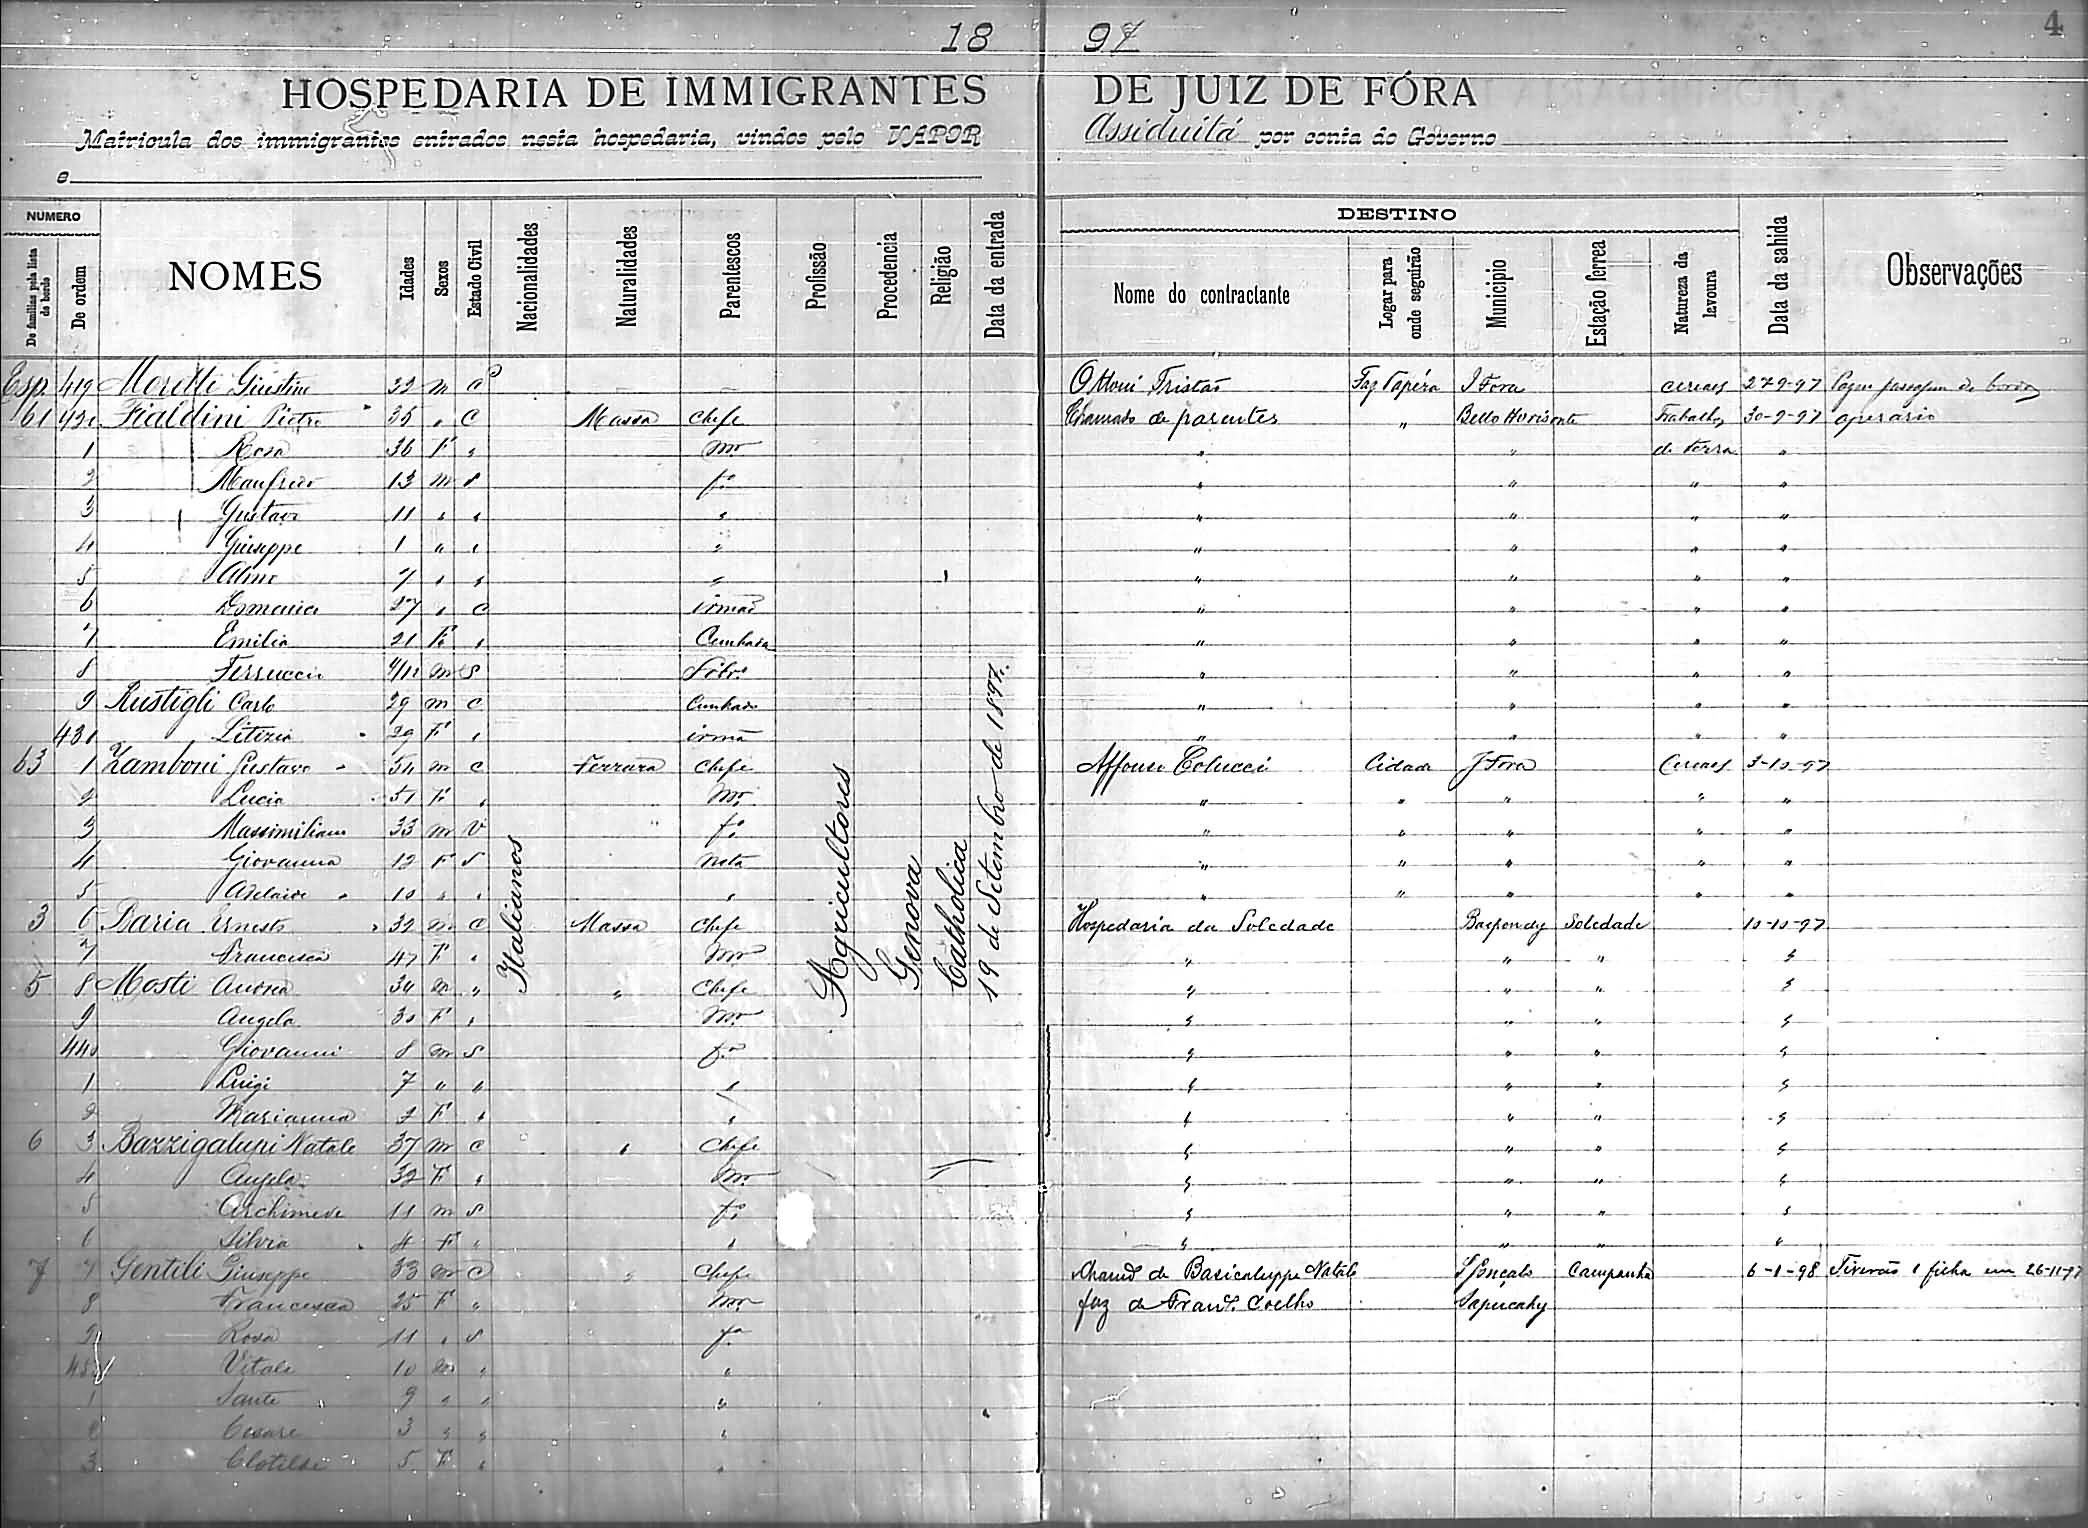 4
18 97
HOSPEDARIA DE IMMIGRANTES DE JUIZ DE FÓRA
Matricula dos immigrantes entrados nesta hospedaria, vindos pelo VAPOR Assiduitá por conta do Governo
e
NUMERO
De familias pela lista de bordo
De ordem
NOMES
Idades
Sexos
Estado Civil
Nacionalidades
Naturalidades
Parentescos
Profissão
Procedencia
Religião
Data da entrada
DESTINO
Nome do contractante
Logar para onde seguirão
Municipio
Estação ferrea
Natureza da lavoura
Data da sahida
Observações
Esp. 419 Moretti Giustino 32 m C Ottoni Tristão Faz Tapéra J Fora cereaes 27-9-97 passagem de bordo
61 420 Fialdini Pietro 35 " C Massa Chefe Chamado de parentes " Bello Horisonte Trabalhos 30-9-97 operario
1 Rosa 36 F " mr " " de terra "
2 Manfredo 13 m s fo " " " "
3 Gustavo 11 " " " " " " "
4 Giuseppe 1 " " " " " " "
5 Almo 7 " " " " " " "
6 27 " C irmão " " " "
7 Emilia 21 F " Cunhada " " " "
8 Ferruccio m s Sobro " " " "
9 Rustigli Carlo 29 m C Cunhado " " " "
431 Letizia 29 F " irmã " " " "
63 1 Zamboni Gustavo 54 m C Ferrara Chefe Affonso Colucci Cidade J Fora Cereaes 3-10-97
2 Lucia 51 F " Mr " " " " "
3 Massimiliano 33 m V " fo " " " " "
4 Giovanna 12 F S neta " " " " "
5 Adelaide 10 " " " " " " " "
3 6 Daria Ernesto 32 m C Massa Chefe Hospedaria da Soledade Baependy Soledade 10-10-97
7 Francisca 47 F " Mr " " " "
5 8 Mosti Andrea 34 m " " Chefe " " " "
9 Angela 30 F " Mr " " " "
440 Giovanni 8 m S fo " " " "
1 Luigi 7 " " " " " " "
2 Marianna 2 F " " " " " "
6 3 Bazzigalupi Natale 37 m C " Chefe " " " "
4 Angela 32 F " Mr " " " "
5 Archimede 11 m S fo " " " "
6 Silvia 4 F " " " " " "
7 7 Gentili Giuseppe 33 m C " Chefe Chamdo de Basicaluppe Natale S Gonçalo Campanha 6-1-98 Tiverão 1 ficha em 26-11-97
8 Francesca 25 F " Mr faz de Frano. Coelho Sapucahy
9 Rosa 11 " S fa
450 Vitale 10 m " "
1 Sante 9 " " "
2 Cesare 3 " " "
3 Clotilde 5 F " "
Italianos
Agricultores
Genova
Catholica
19 de Setembro de 1897.